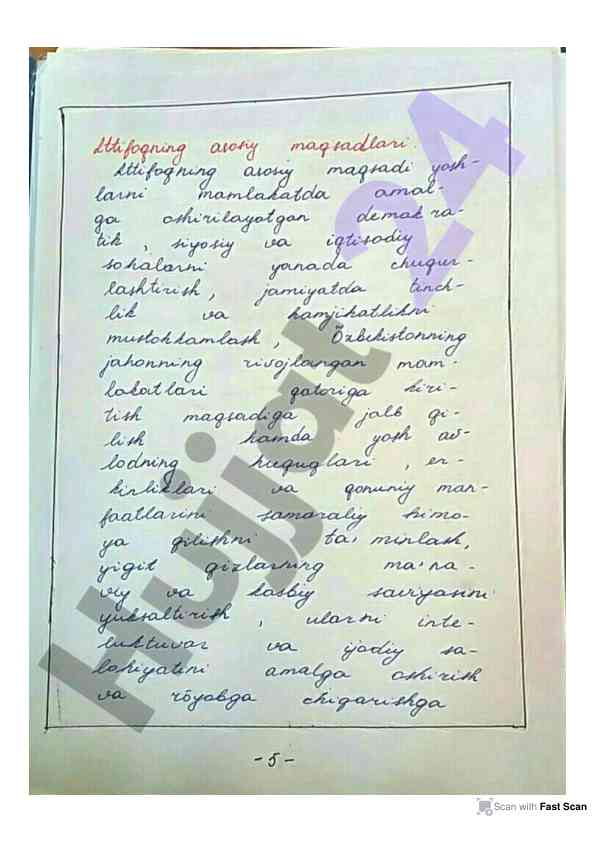 Ittifoqning asosiy maqsadlari.
Ittifoqning asosiy maqsadi yosh-
larni mamlakatda amal-
ga oshirilayotgan demokra-
tik, siyosiy va iqtisodiy
sohalarni yanada chuqur-
lashtirish, jamiyatda tinch-
lik va hamjihatlikni
mustahkamlash, Õzbekistonning
jahonning rivojlangan mam-
lakatlari qatoriga kiri-
tish maqsadiga jalb qi-
lish hamda yosh av-
lodning huquqlari, er-
kinliklari va qonuniy man-
faatlarini samaraliy himo-
ya qilishni ta'minlash,
yigit qizlarning ma'na-
viy va kasbiy saviyasini
yuksaltirish, ularni inte-
lektuvar va ijodiy sa-
lohiyatini amalga oshirish
va rõyobga chiqarishga
-5-
Hujjat 24
Scan with Fast Scan